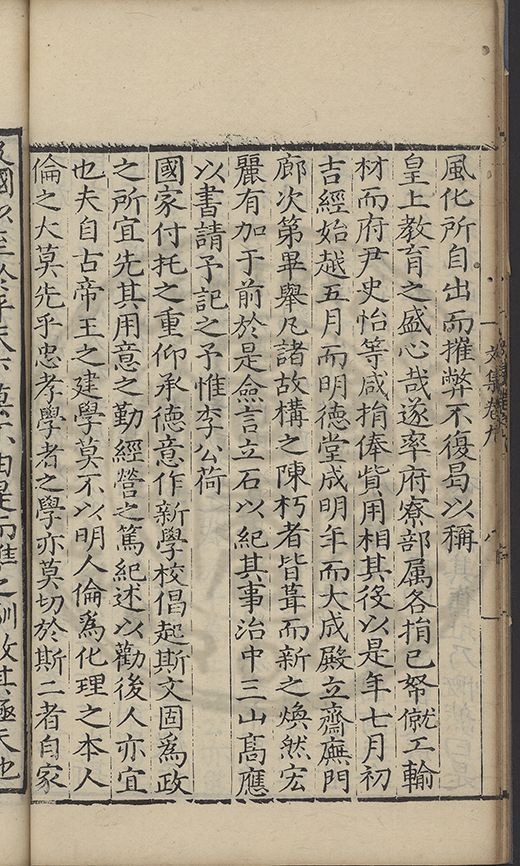 風化所自出而摧弊不復曷以稱
皇上教育之盛心哉遂率府寮部属各捐已帑僦工輸
材而府尹史怡等咸捐俸貲用相其役以是年七月初
吉經始越五月而明德堂成明年而大成殿立齋廡門
廊次第畢舉凡諸故構之陳朽者皆葺而新之煥然宏
麗有加于前於是僉言立石以紀其事治中三山髙應
以書請予記之予惟李公荷
國家付托之重仰承德意作新學校倡起斯文固爲政
之所宜先其用意之勤經營之篤紀述以勸後人亦宜
也夫自古帝王之建學莫不以明人倫爲化理之本人
倫之大莫先乎忠孝學者之學亦莫切於斯二者自家
文集卷九
八